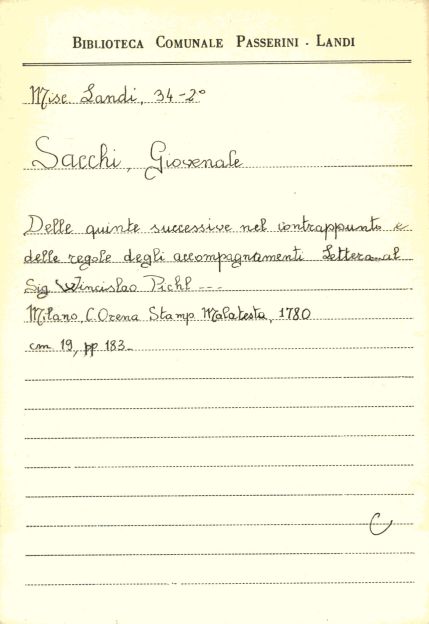 BIBLIOTECA COMUNALE PASSERINI - LANDI
Misc. Landi, 34-2°
Sacchi, Giovenale
Delle quinte successive nel contrappunto e
delle regole degli accompagnamenti Lettera al
Sig. Wincislao Pichl ---
Milano, C. Orena Stamp. Malatesta, 1780
cm 19, pp 183.
C